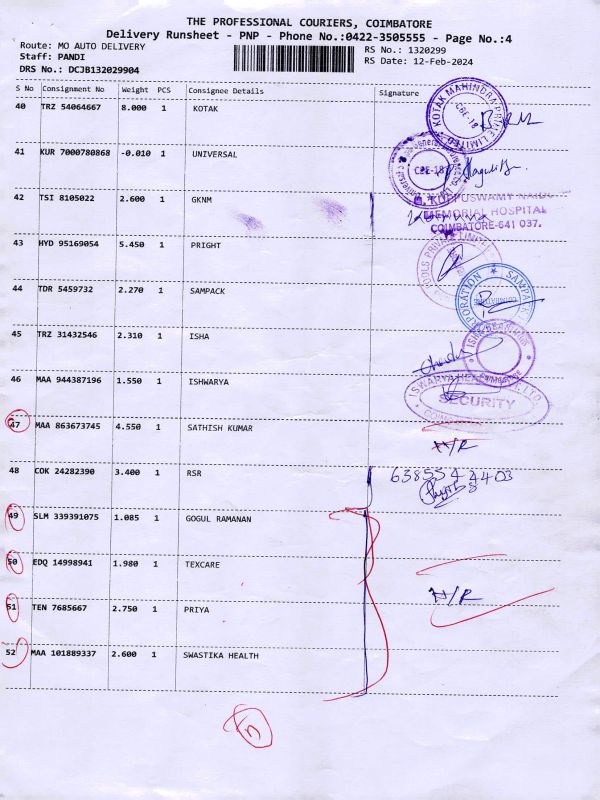 THE PROFESSIONAL COURIERS, COIMBATORE
Delivery Runsheet - PNP - Phone No.:0422-3505555 - Page No.:4
Route: MO AUTO DELIVERY RS No.: 1320299
Staff: PANDI RS Date: 12-Feb-2024
DRS No.: DCJB132029904
S No Consignment No Weight PCS Consignee Details Signature
40 TRZ 54064667 8.000 1 KOTAK
KOTAK MAHINDRA PRIME LIMITED
CBE-18
41 KUR 7000780868 -0.010 1 UNIVERSAL
CBE-18
42 TSI 8105022 2.600 1 GKNM
G. KUPPUSWAMY NAIDU
MEMORIAL HOSPITAL
COIMBATORE-641 037.
43 HYD 95169054 5.450 1 PRIGHT
TOOLS PRIVATE LIMITED
44 TDR 5459732 2.270 1 SAMPACK
SAMPACK CORPORATION
45 TRZ 31432546 2.310 1 ISHA
46 MAA 944387196 1.550 1 ISHWARYA
ISWARYA HEALTH PVT. LTD
SECURITY
47 MAA 863673745 4.550 1 SATHISH KUMAR
N/R
48 COK 24282390 3.400 1 RSR
6385544403
49 SLM 339391075 1.085 1 GOGUL RAMANAN
50 EDQ 14998941 1.980 1 TEXCARE
N/R
51 TEN 7685667 2.750 1 PRIYA
52 MAA 101889337 2.600 1 SWASTIKA HEALTH